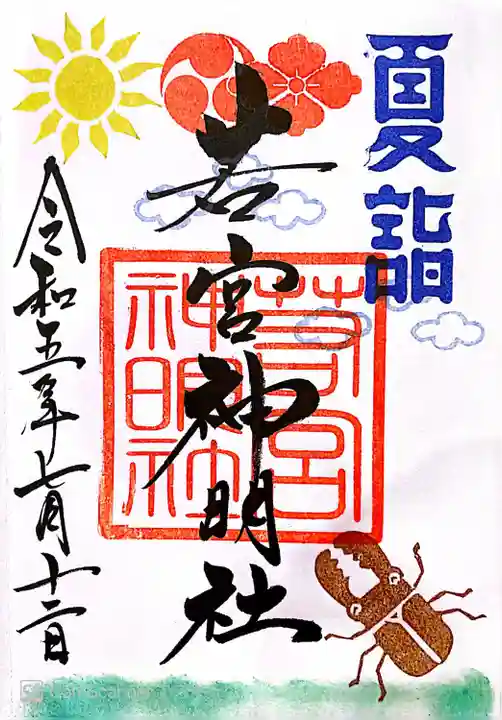 夏詣
若宮神明社
若宮
神明社
令和五年七月十二日